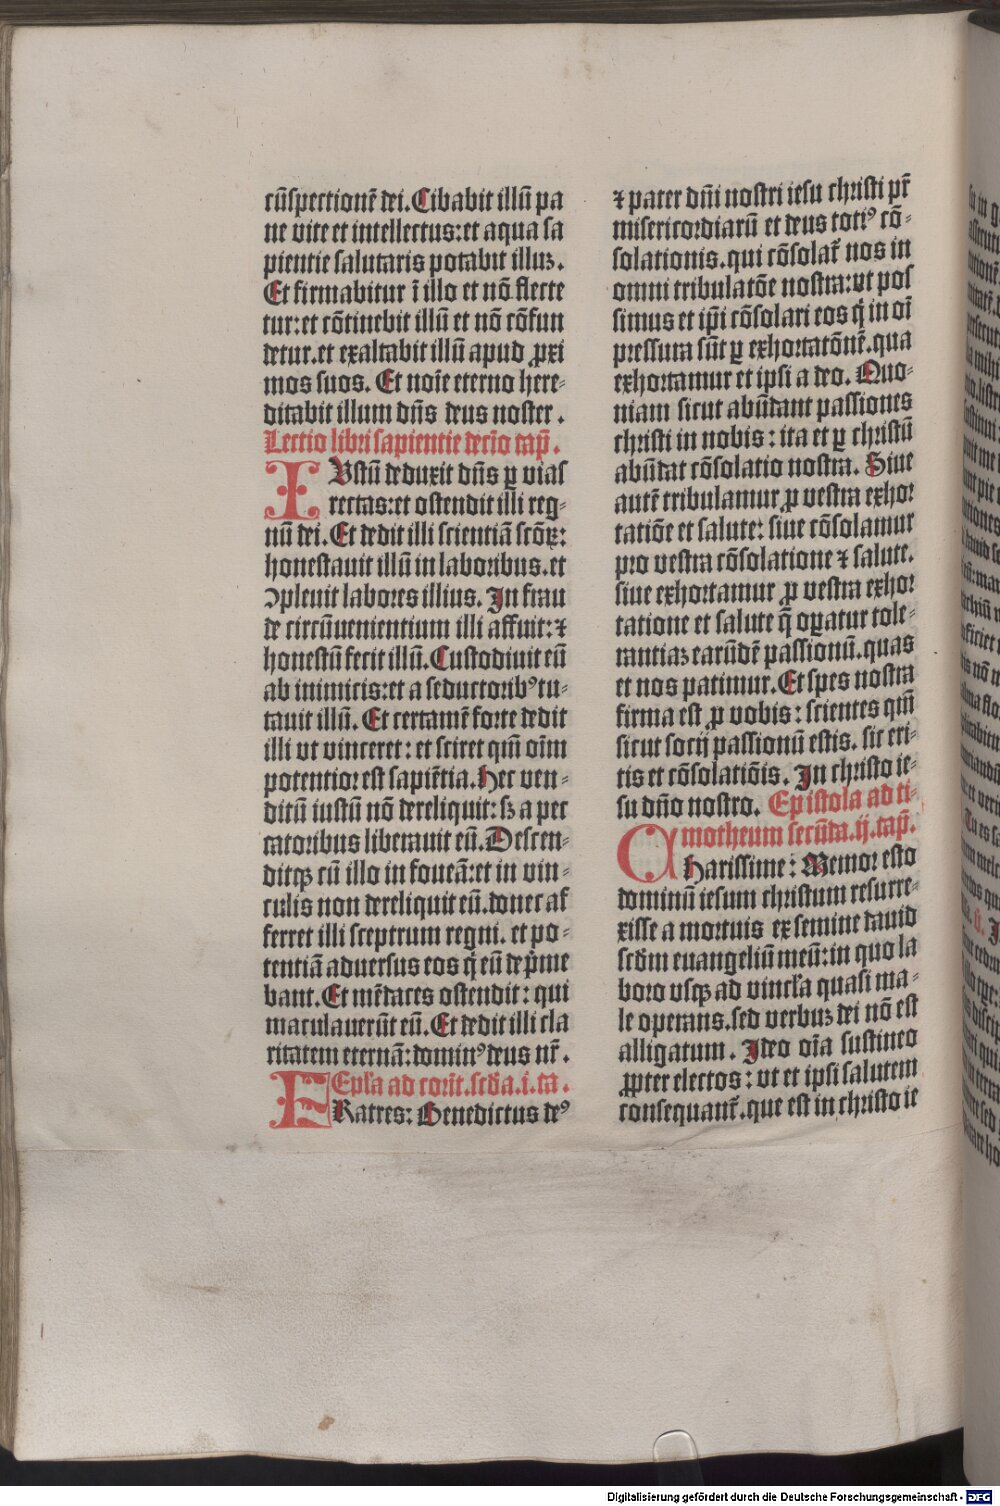 cũſpectionē dei. Cibabit illũ pa
ne vite et intellectus: et aqua ſa
pientie ſalutaris potabit illuꝫ.
Et firmabitur ĩ illo et nō flecte
tur: et cōtinebit illũ et nō cōfun
detur. et exaltabit illũ apud ꝓxi
mos ſuos. Et noīe eterno here-
ditabit illum dn̄s deus noſter.
Lectio libri ſapientie decīo cap̄.
IVſtũ deduxit dn̄s ꝑ vias
rectas: et oſtendit illi reg-
nũ dei. Et dedit illi ſcientiā ſcōꝝ:
honeſtauit illũ in laboribus. et
ↄpleuit labores illius. In frau
de circũuenientium illi affuit: ⁊
honeſtũ fecit illũ. Cuſtodiuit eũ
ab inimicis: et a ſeductoribꝰ tu-
tauit illũ. Et certamē forte dedit
illi vt vinceret: et ſciret qm̄ oīm
potentior eſt ſapiētia. Hec ven-
ditũ iuſtũ nō dereliquit: ſꝫ a pec
catoribus liberauit eũ. Deſcen-
ditqꝫ cũ illo in foueā: et in vin-
culis non dereliquit eũ. donec af
ferret illi ſceptrum regni. et po-
tentiā aduerſus eos q̄ eũ dep̄me
bant. Et mēdaces oſtendit: qui
maculauerũt eũ. Et dedit illi cla
ritatem eternā: dominꝰ deus nr̄.
Epl̄a ad corīt. ſcd̄a. i. ca.
FRatres: Benedictus deꝰ
⁊ pater dn̄i noſtri ieſu chriſti pr̄
miſericordiarũ et deus totiꝰ cō-
ſolationis. qui cōſolat̄ nos in
omni tribulatōe noſtra: vt poſ
ſimus et ip̄i cōſolari eos q̄ in oī
preſſura ſũt ꝑ exhortatōnē. qua
exhortamur et ipſi a deo. Quo-
niam ſicut abũdant paſſiones
chriſti in nobis: ita et ꝑ chriſtũ
abũdat cōſolatio noſtra. Siue
autē tribulamur ꝓ veſtra exhor
tatiōe et ſalute: ſiue cōſolamur
pro veſtra cōſolatione ⁊ ſalute.
ſiue exhortamur ꝓ veſtra exhor
tatione et ſalute q̄ oꝑatur tole-
rantiaꝫ earũdē paſſionũ. quas
et nos patimur. Et ſpes noſtra
firma eſt ꝓ vobis: ſcientes qm̄
ſicut ſocij paſſionũ eſtis. ſic eri-
tis et cōſolatiōis. In chriſto ie-
ſu dn̄o noſtro. Epiſtola ad ti-
motheum ſecũda. ij. cap̄.
CHariſſime: Memor eſto
dominũ ieſum chriſtum reſurre-
xiſſe a mortuis ex ſemine dauid
ſcd̄m euangeliũ meũ: in quo la
boro vſqꝫ ad vincl̄a quaſi ma-
le operans. ſed verbuꝫ dei nō eſt
alligatum. Ideo oīa ſuſtineo
ꝓpter electos: vt et ipſi ſalutem
conſequant̄. que eſt in chriſto ie
Digitalisierung gefördert durch die Deutsche Forschungsgemeinschaft - DFG